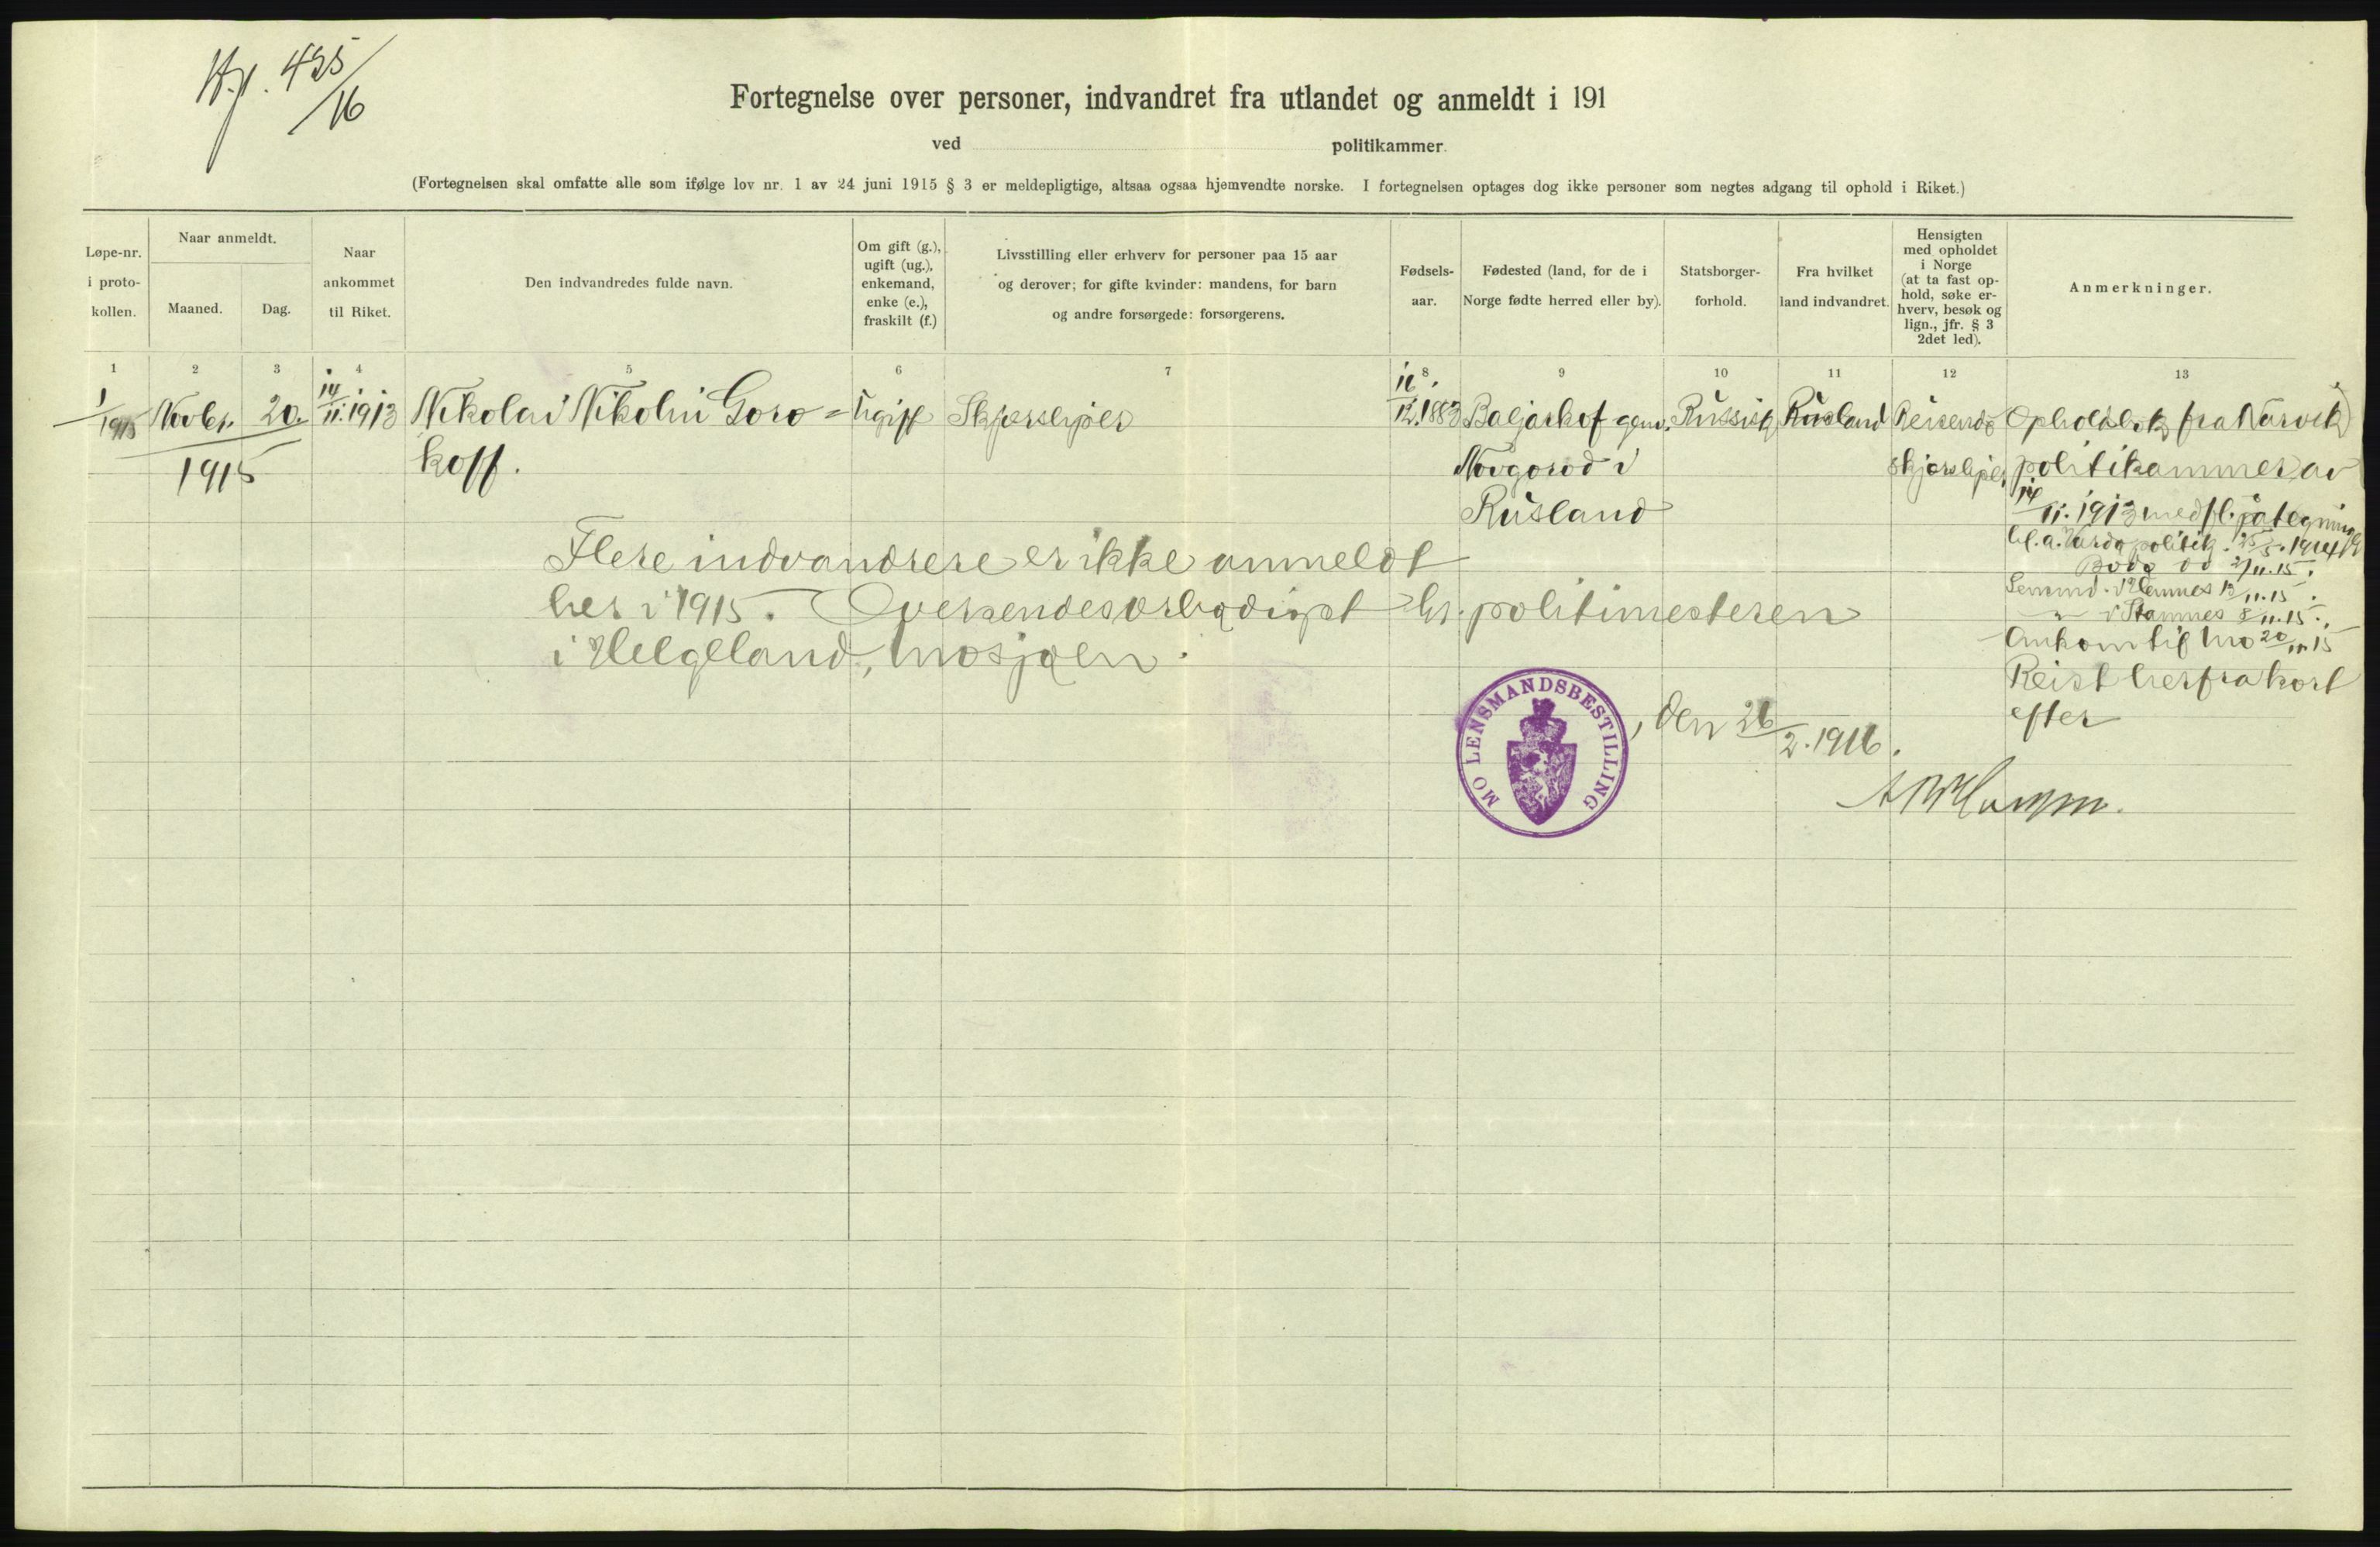 435/16
Fortegnelse over personer, indvandret fra utlandet og anmeldt i 191
ved politikammer.
(Fortegnelsen skal omfatte alle som ifølge lov nr. 1 av 24 juni 1915 § 3 er meldepligtige, altsaa ogsaa hjemvendte norske. I fortegnelsen optages dog ikke personer som negtes adgang til ophold i Riket.)
Løpe-nr. i proto- kollen.
Naar anmeldt.
Maaned. Dag.
Naar ankommet til Riket.
Den indvandredes fulde navn.
Om gift (g.), ugift (ug.), enkemand, enke (e.), fraskilt (f.)
Livsstilling eller erhverv for personer paa 15 aar
og derover; for gifte kvinder: mandens, for barn
og andre forsørgede: forsørgerens.
Fødsels- aar.
Fødested (land, for de i
Norge fødte herred eller by).
Statsborger- forhold.
Fra hvilket
land indvandret.
Hensigten
med opholdet
i Norge
(at ta fast op-
hold, søke er-
hverv, besøk og
lign., jfr. § 3
2det led).
Anmerkninger.
1 2 3 4 5 6 7 8 9 10 11 12 13
1/1915 Novbr. 20. 14/11.1913 Nikolai Nikolin Goro= Ugift Skjærsliper 16/12.1883 Baljarkof gem. Russisk Rusland Reisende Opholdsbok fra Narvik
1915 koff. Novgorod i skjærsliper politikammer av
Rusland 14/11.1913 med fl. påtegning
bl.a. Vardø politik. 25/5.1914
Bodø do 2/11.15.
Lensmd. i Hemnes 13/11.15.
" i Stamnes 8/11.15.
Ankom til Mo 20/11.15
Reist herfra kort
efter
Flere indvandrere er ikke anmeldt
her i 1915. Oversendes ærbødigst hr. politimesteren
i Helgeland, Mosjøen.
MO LENSMANDSBESTILLING
, den 26/2.1916.